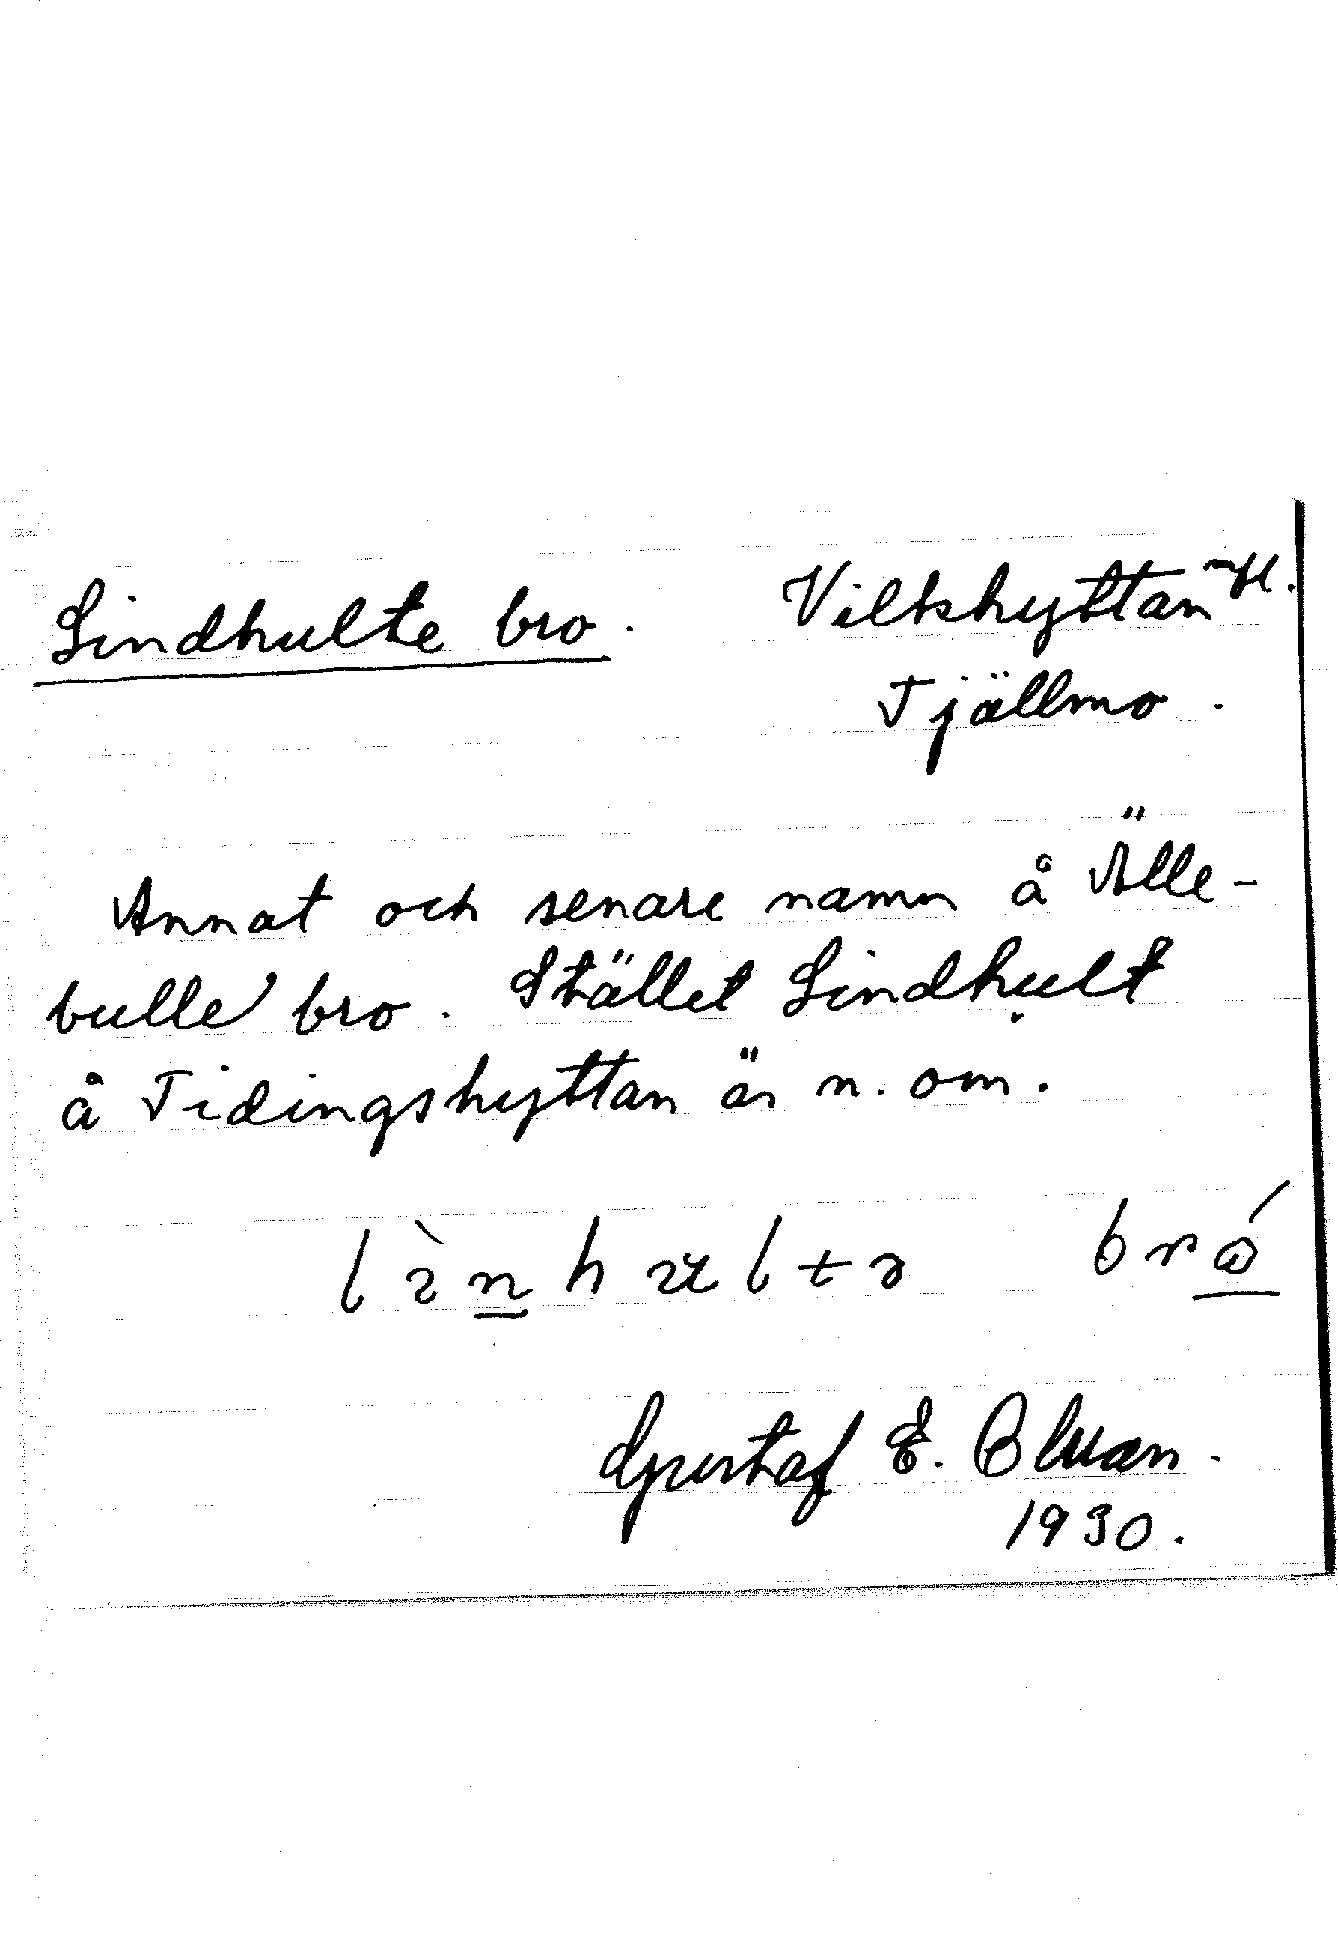 Lindhulte bro. Vilkshyttan
Tjällmo.
Annat och senare namn å Älle-
bulle bro. Stället Lindhult
å Tidingshyttan är n. om.
Gustaf E.
1930.